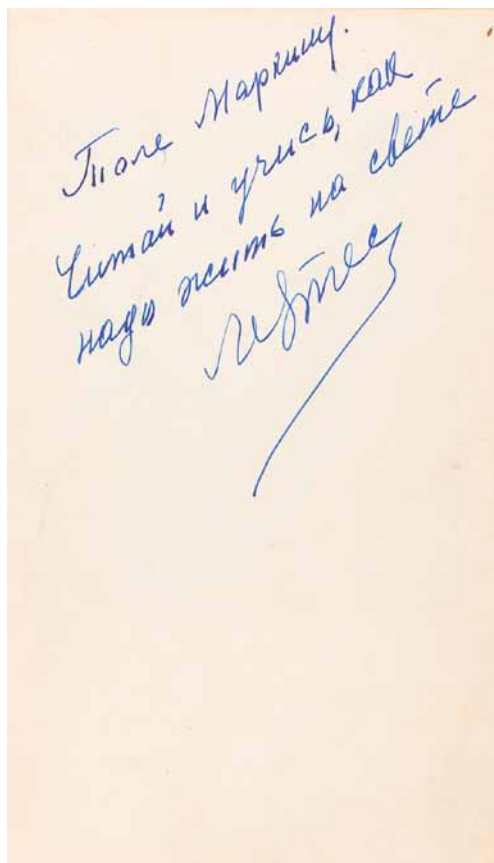 Толе Маркину.
Читай и учись, как
надо жить на свете